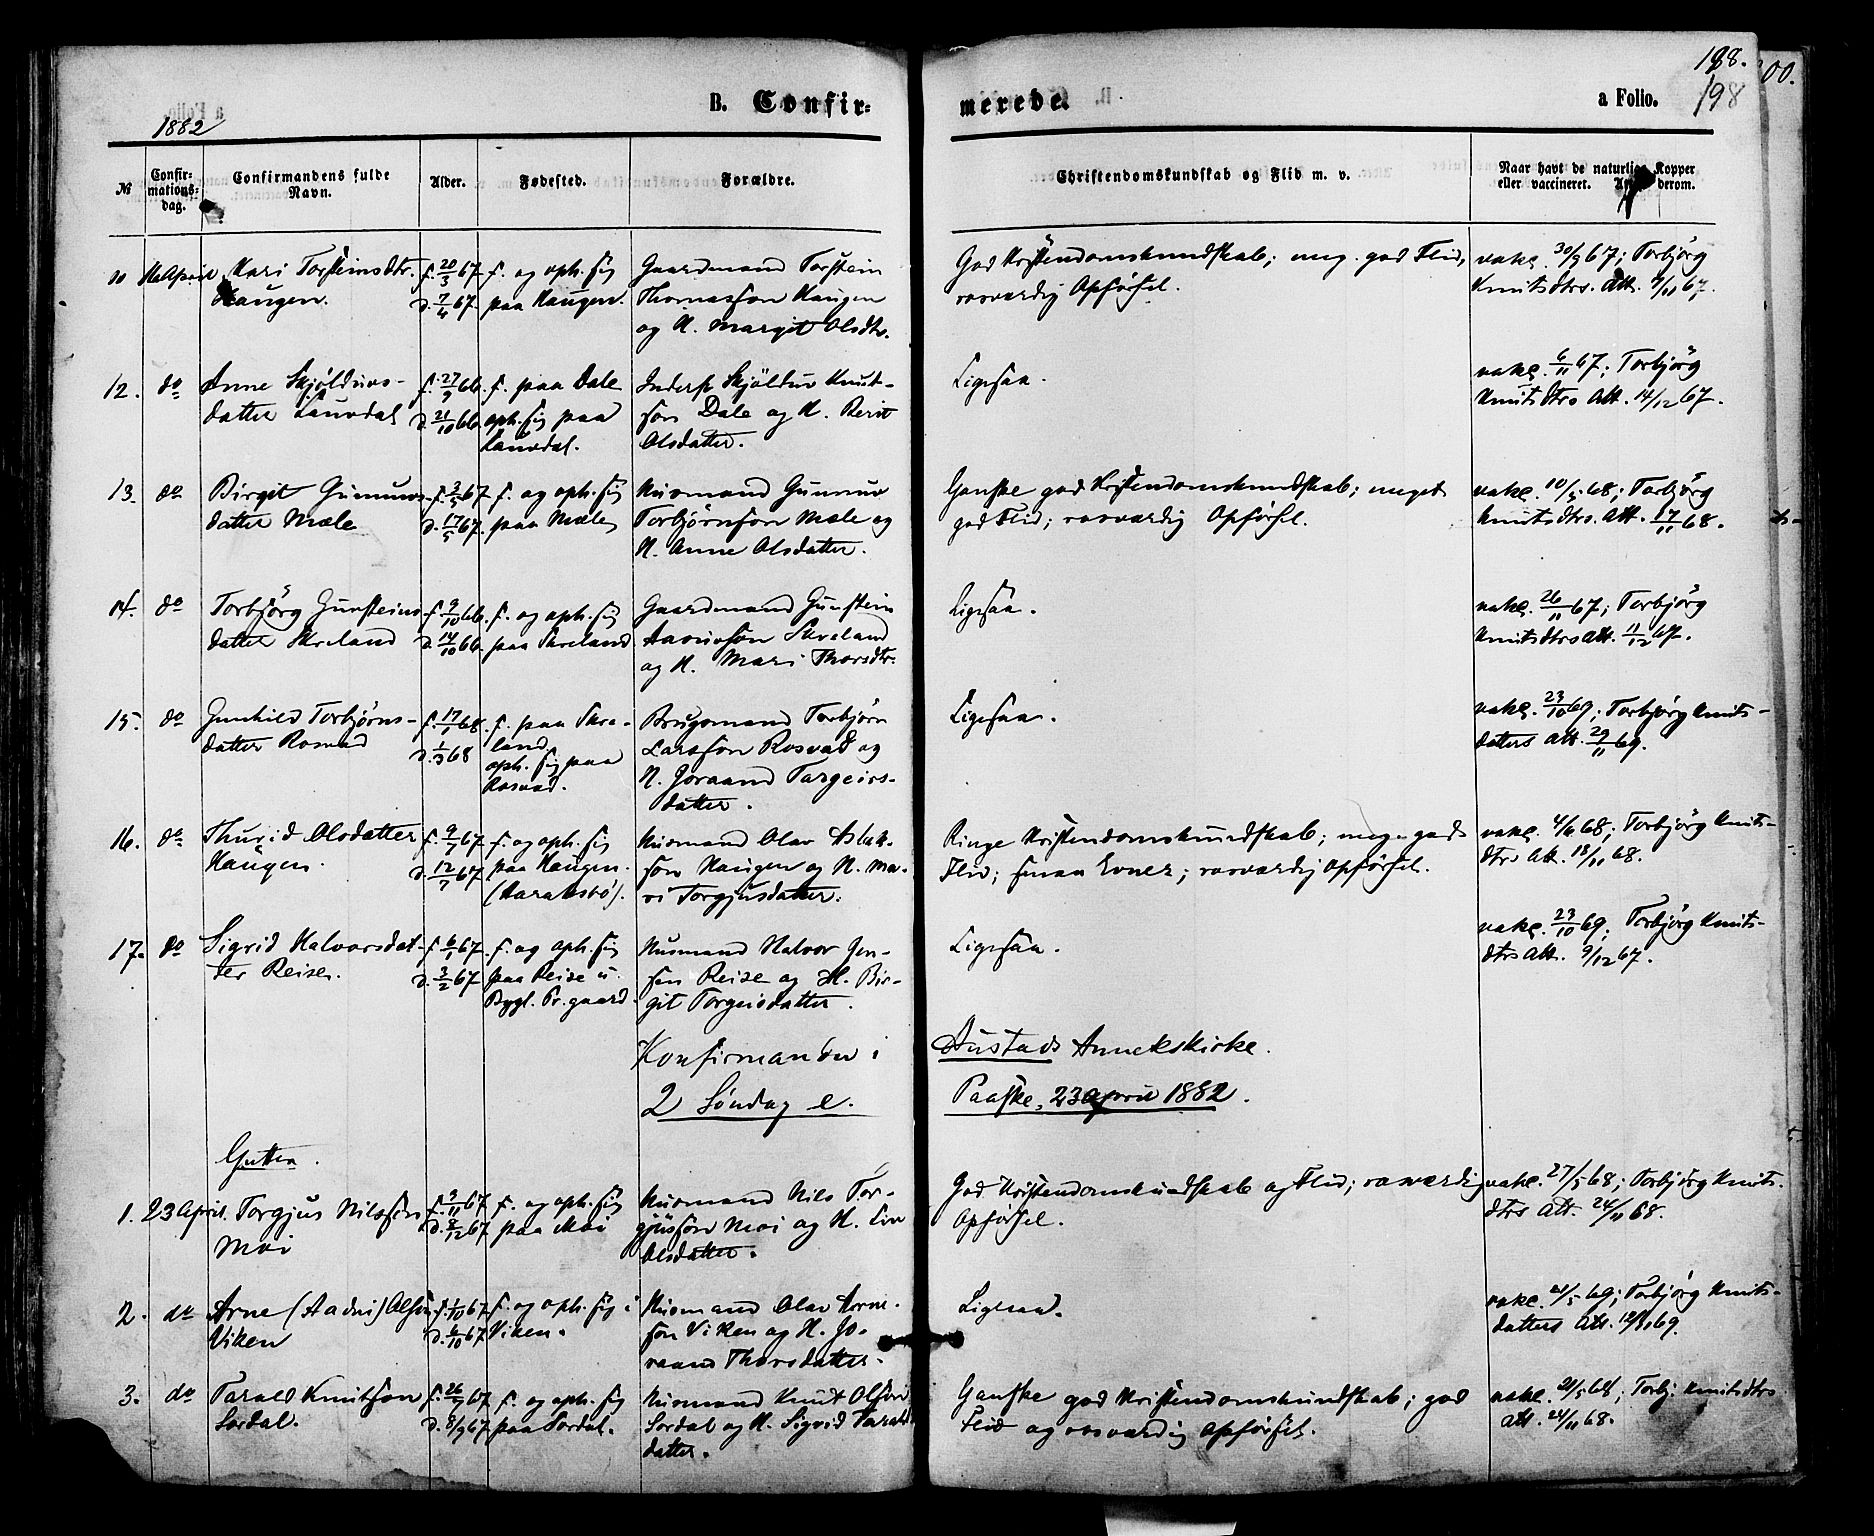 1882
B. Confirmerede.
a Folio.
198.
198
200.
№
Confirmationsdag.
Confirmandens fulde Navn.
Alder.
Fødested.
Forældre.
Christendomskundskab og Flid m. v.
Naar havt de naturlige Kopper
eller vaccineret. Att. derom.
Kari Torsteinsdtr.
Haugen.
f. 20/3 67.
d. 7/4 67.
f. og oph. sig
paa Haugen.
Gaardmand Torstein
Thomasson Haugen
og H. Margit Olsdtr.
God Kristendomskundskab; meg. god Flid,
rosværdig Opførsel.
vakc. 30/9 67; Torbjörg
Knutsdtrs. Att. 9/11 67.
12. do Anne Skjöldulvs-
datter Lauvdal
f. 27/9 66.
d. 21/10 66.
f. paa Dale
oph. sig paa
Lauvdal.
Inderst Skjöldulv Knut-
son Dale og H. Berit
Olsdatter.
Ligesaa.
vakc. 6/11 67; Torbjörg
Knutsdtrs Att. 14/12 67.
13. do Birgit Gunnuvs-
datter Mæle
f. 3/5 67.
d. 17/5 67.
f. og oph. sig
paa Mæle
Husmand Gunnuv
Torbjørnson Mæle og
H. Anne Olsdatter.
Ganske god Kristendomskundskab; meget
god Flid; rosværdig Opførsel.
vakc. 10/5 68; Torbjörg
Knutsdtrs. Att. 17/11 68.
14. do Torbjörg Gunsteins-
datter Skreland
f. 9/10 66.
d. 14/10 66.
f. og oph. sig
paa Skreland.
Gaardmand Gunstein
Aanunson Skreland
og H. Mari Thorsdtr.
Ligesaa.
vakc. 26/11 67; Torbjörg
Knutsdtrs Att. 11/12 67.
15. do Gunhild Torbjørns-
datter Rosvad
f. 17/1 68.
d. 1/3 68
f. paa Skre-
land,
oph. sig paa
Rosvad.
Brugsmand Torbjørn
Larsson Rosvad og
H. Joraand Targeirs-
datter.
Ligesaa.
vakc. 23/10 69; Torbjörg Knuts-
datters Att. 29/11 69.
16. do Thurid Olsdatter
Haugen.
f. 9/7 67.
d. 12/7 67.
f. og oph. sig
paa Haugen.
Husmand Olav Aslak-
son Haugen og H. Ma-
ri Torgjusdatter.
Ringe Kristendomskundskab; meget god
Flid; smaa Evner; rosværdig Opførsel.
vakc. 4/6 68; Torbjörg Knuts-
dtrs Att. 18/11 68.
17. do Sigrid Halvorsdat-
ter Reise.
f. 6/1 67.
d. 3/2 67
f. og oph. sig
paa Reise u.
Bygl. Pr.gaard.
Husmand Halvor Jon-
son Reise og H. Bir-
git Torgeisdatter.
Ligesaa.
vakc. 23/10 69; Torbjörg Knuts-
dtrs Att. 9/12 67.
Konfirmander i Austads Annekskirke.
2 Søndag e. Paaske, 23 April 1882.
Gutter.
1. 23 April. Torgjus Nilsson
Moi
f. 3/11 67
d. 8/12 67
f. og oph. sig
paa Moi
Husmand Nils Tor-
gjusson Moi og H. Liv
Olsdatter.
God Kristendomskundskab og Flid; rosværdig
Opførsel.
vakc. 27/5 68; Torbjörg Knuts-
dtrs Att. 24/11 68.
2. do Arne (Aadni) Olson
Viken
f. 1/10 67
d. 6/10 67
f. og oph. sig i
Viken.
Husmand Olav Arne-
son Viken og H. Jo-
raand Thorsdatter.
Ligesaa.
vakc. 21/5 69; Torbjörg Knuts-
datters Att. 69.
3. do Tarald Knutson
Sordal.
f. 26/7 67
d. 8/9 67
f. og oph. sig
paa Sordal.
Husmand Knut Olson
Sordal og H. Sigrid Taralds-
datter.
Ganske god Kristendomskundskab; god
Flid og rosværdig Opførsel.
vakc. 21/5 68; Torbj. Knutsdtrs
Att. 24/11 68.